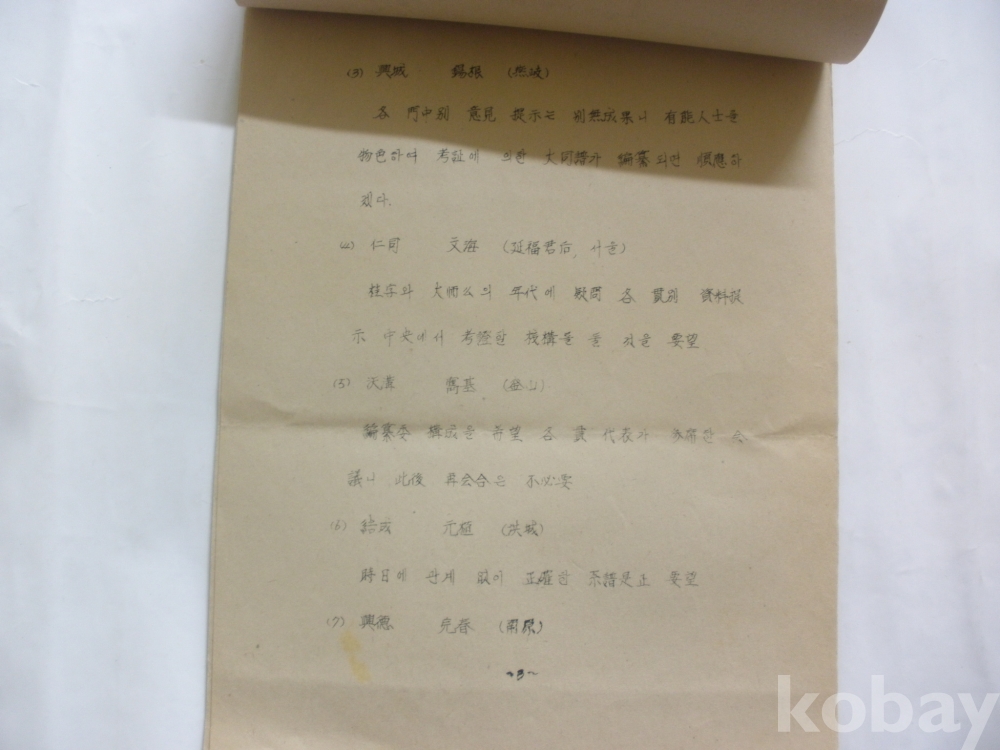 (3) 興城 錫根 (無
各 門中別 意見 提示는 別無成果니 有能人士를
物色하여 考証에 의한 大同譜가 編纂되면 順應하
겠다.
(4) 仁同 文海 (延福君后, 서울)
桂字와 大師公의 年代에 疑問 各 貫別 資料提
示 中央에서 考證한 機構를 둘 것을 要望
(5) 沃溝 喬基
編纂委 構成을 希望 各 貫 代表가 参席한 会
議니 此後 再会合은 不必要
(6) 結城 元植 (洪城)
時日에 관계 없이 正確한 系譜是正 要望
(7) 興德 充
~3~
kobay